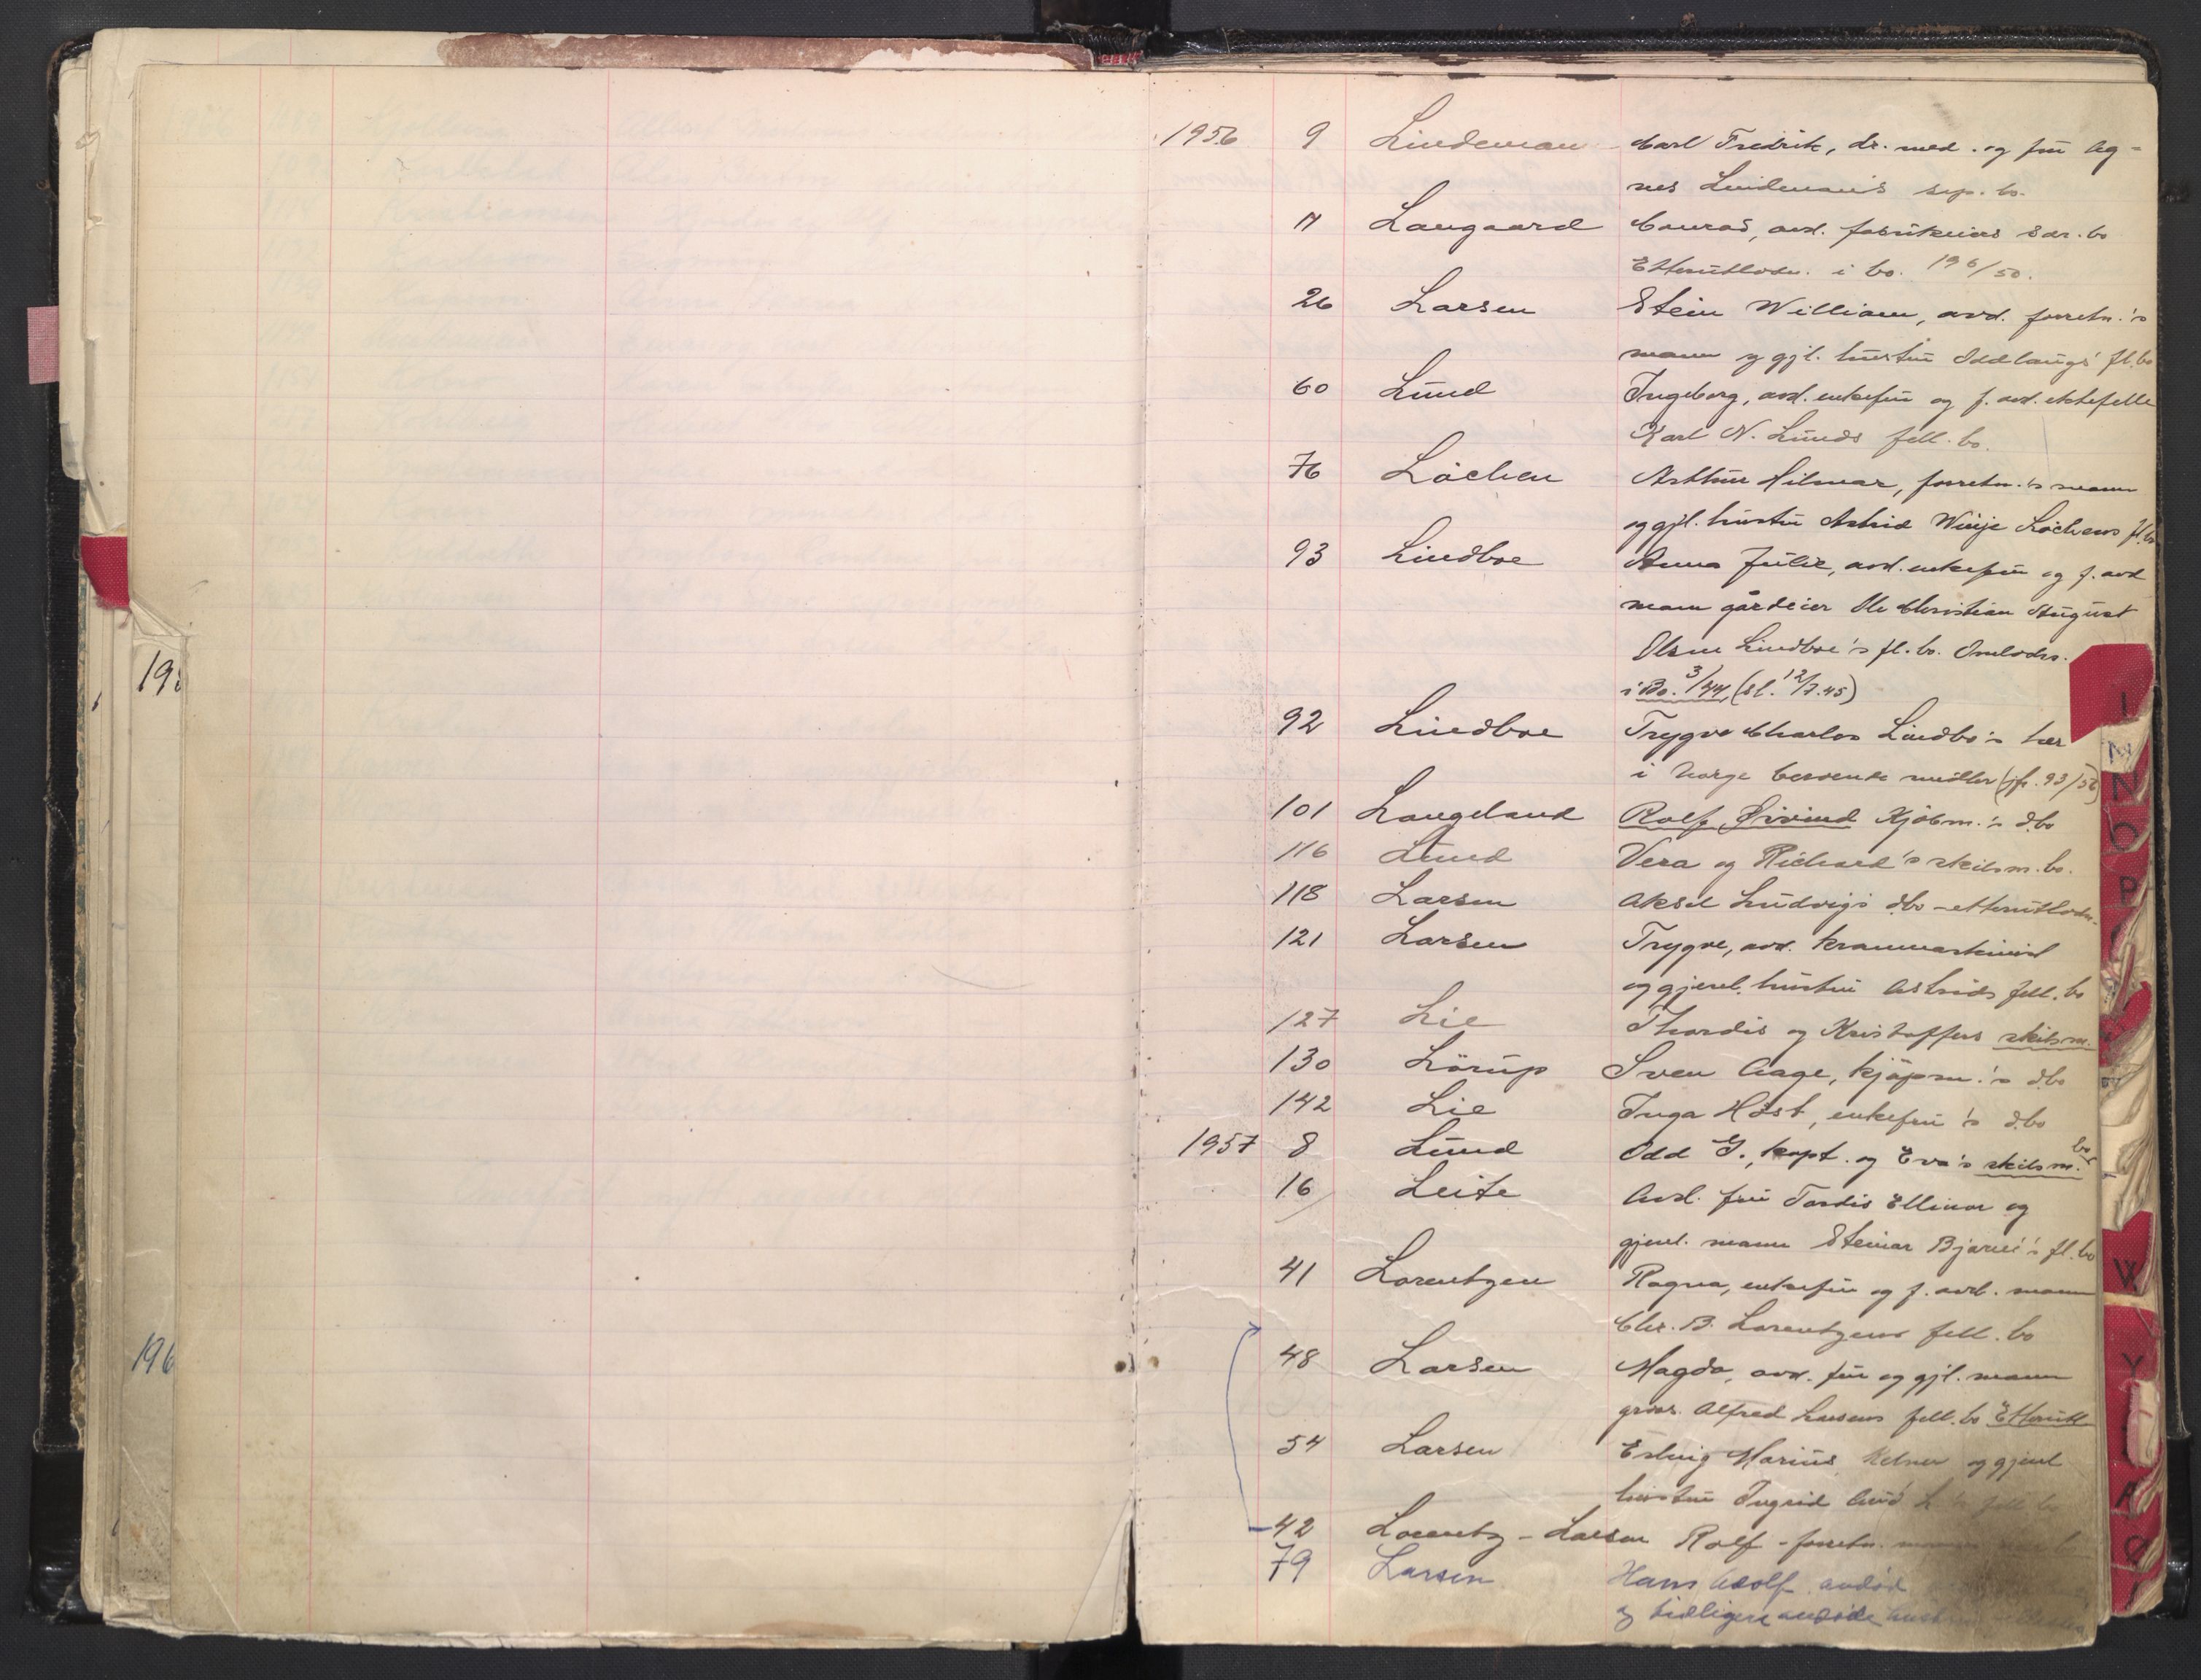 1956 9 Lindeman Carl Fredrik, dr. med. og fru Ag-
nes Lindeman's sep. bo.
17 Langaard Conrad, avd. fabrikeiers sær. bo
Etterutlodn. i bo. 196/50.
26 Larsen Stein William, avd. forretn.'s
mann og gjl. hustru Oddlaugs' fl. bo
60 Lund Ingeborg, avd. enkefru og f. avd. ektefelle
Karl N. Lunds fell. bo.
76 Løchen Arthur Hilmar, forretn.'s mann
og gjl. hustru Astrid Winje Løchens fl. bo
93 Lindboe Anna Julie, avd. enkefru og f. avd
mann gårdeier Ole Christian August
Olsen Lindboe's fl. bo. Omlodn.
i Bo. 3/44, (sl. 12/7.45)
92 Lindboe Trygve Charles Lindbo's her
i Norge beroende midler (jfr. 93/56)
101 Langeland Rolf Øivind Kjøbm.'s d.bo
116 Lund Vera og Richard's skilsm. bo.
118 Larsen Aksel Ludvigs d.bo - etterutlodn.
121 Larsen Trygve, avd. kranmaskinist
og gjenl. hustru Astrids fell. bo
127 Lie Thordis og Kristoffers skilsm.
130 Lörup Sven Aage, kjøpm.'s d.bo
142 Lie Inga Høst, enkefru's d.bo
1957 8 Lund Odd G., kapt. og Eva's skilsm. bo
16 Leite Avd. fru Tordis Ellinor og
gjenl. mann Steinar Bjarne's fl. bo
41 Lorentzen Ragna, enkefru og f. avd. mann
Chr. B. Lorentzens fell. bo
48 Larsen Magda, avd. fru og gjl. mann
gross. Alfred Larsens fell. bo Etterutl
54 Larsen Erling Marius, Kelner og gjenl
hustru Ingrid L's fell bo
42 Lorentz-Larsen Rolf - forretn.
79 Larsen Hans Adolf avdød
og tidligere avdøde hustru
195
196
I
N
N
O
P
V
Y